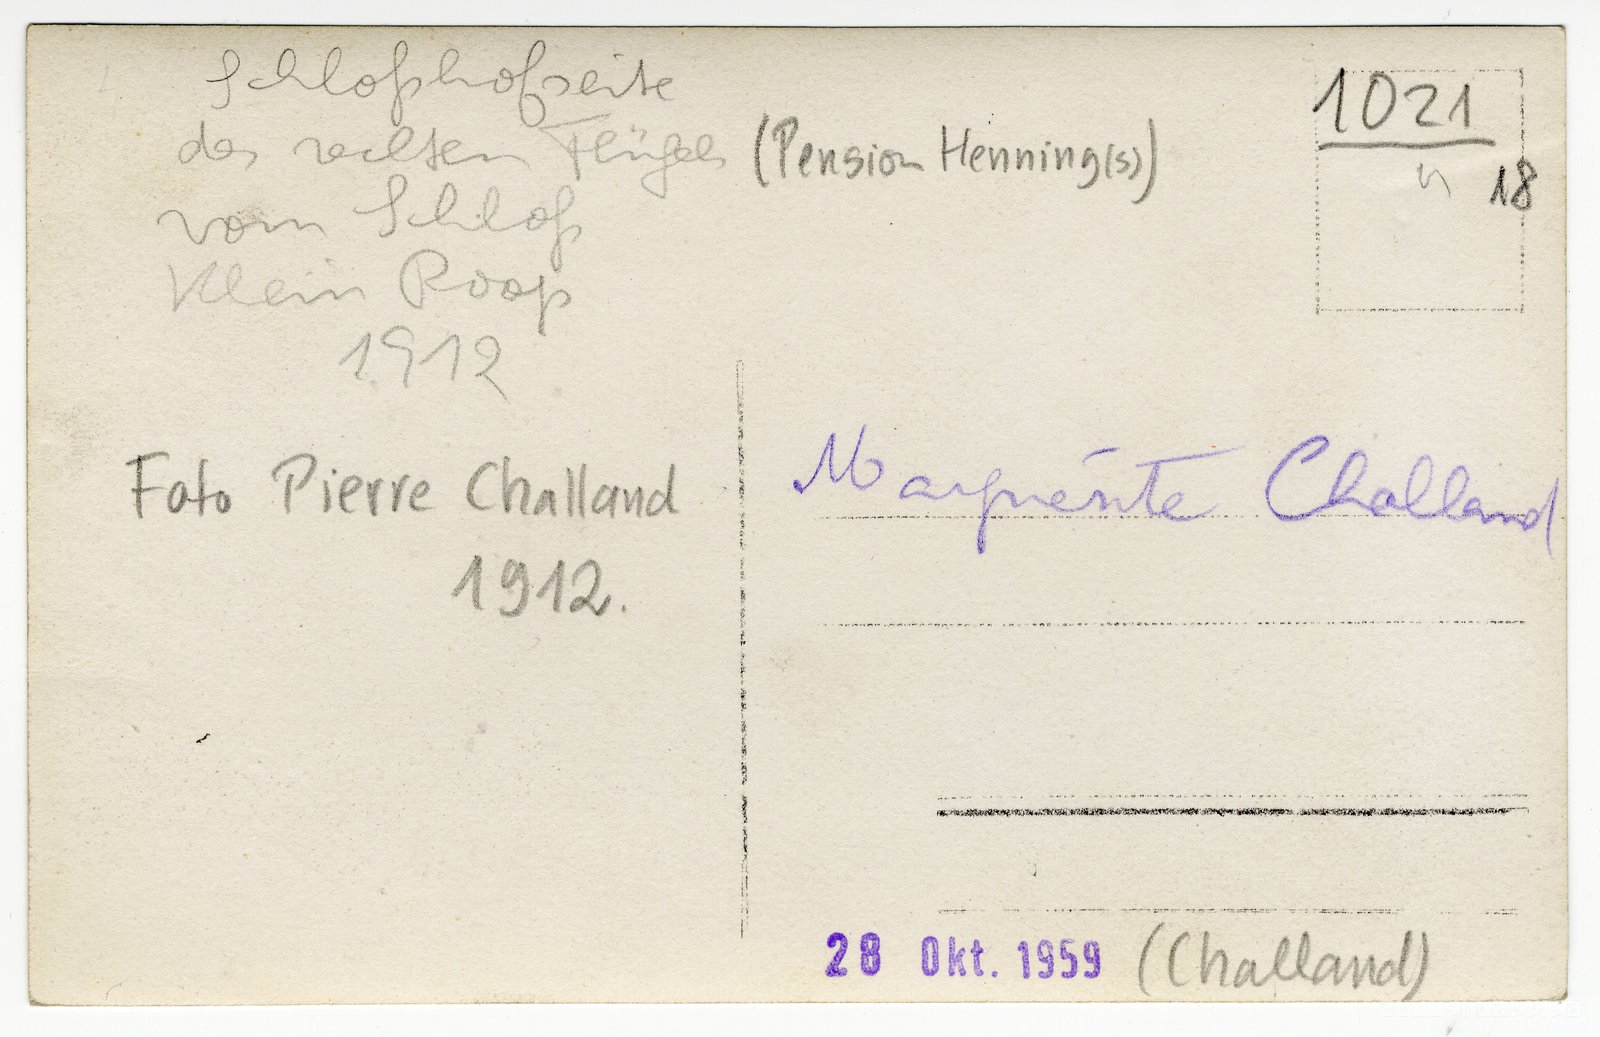 Schloßhofseite
des rechten Flügels (Pension Henning(s))
vom Schloß
Klein Roop
1912
1021
18
Foto Pierre Challand
1912.
Marguérite Challand
28 Okt. 1959 (Challand)